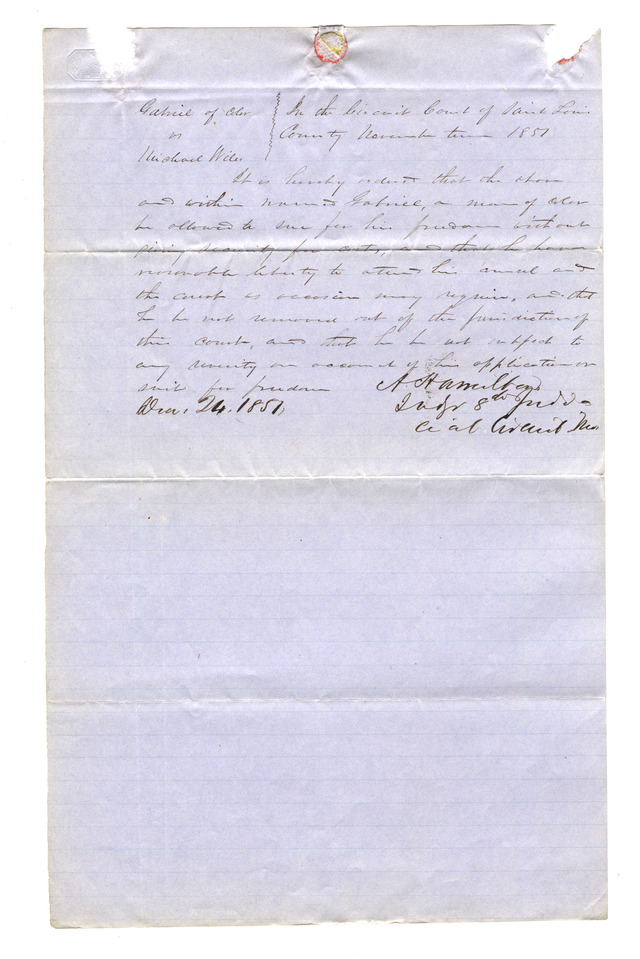 Gabriel of Color
vs
Michael Wiles
In the Circuit Court of Saint Louis
County November term 1851
It is hereby ordered that the above
and within named Gabriel, a man of color
be allowed to sue for his freedom without
giving security for costs, and that he have
reasonable liberty to attend his counsel and
the court as occasion may require, and that
he be not removed out of the jurisdiction of
this court, and that he be not subject to
any severity on account of his application or
suit for freedom
Dec. 24. 1851,
A Hamilton
Judge 8th Judi-
cial Circuit Mo